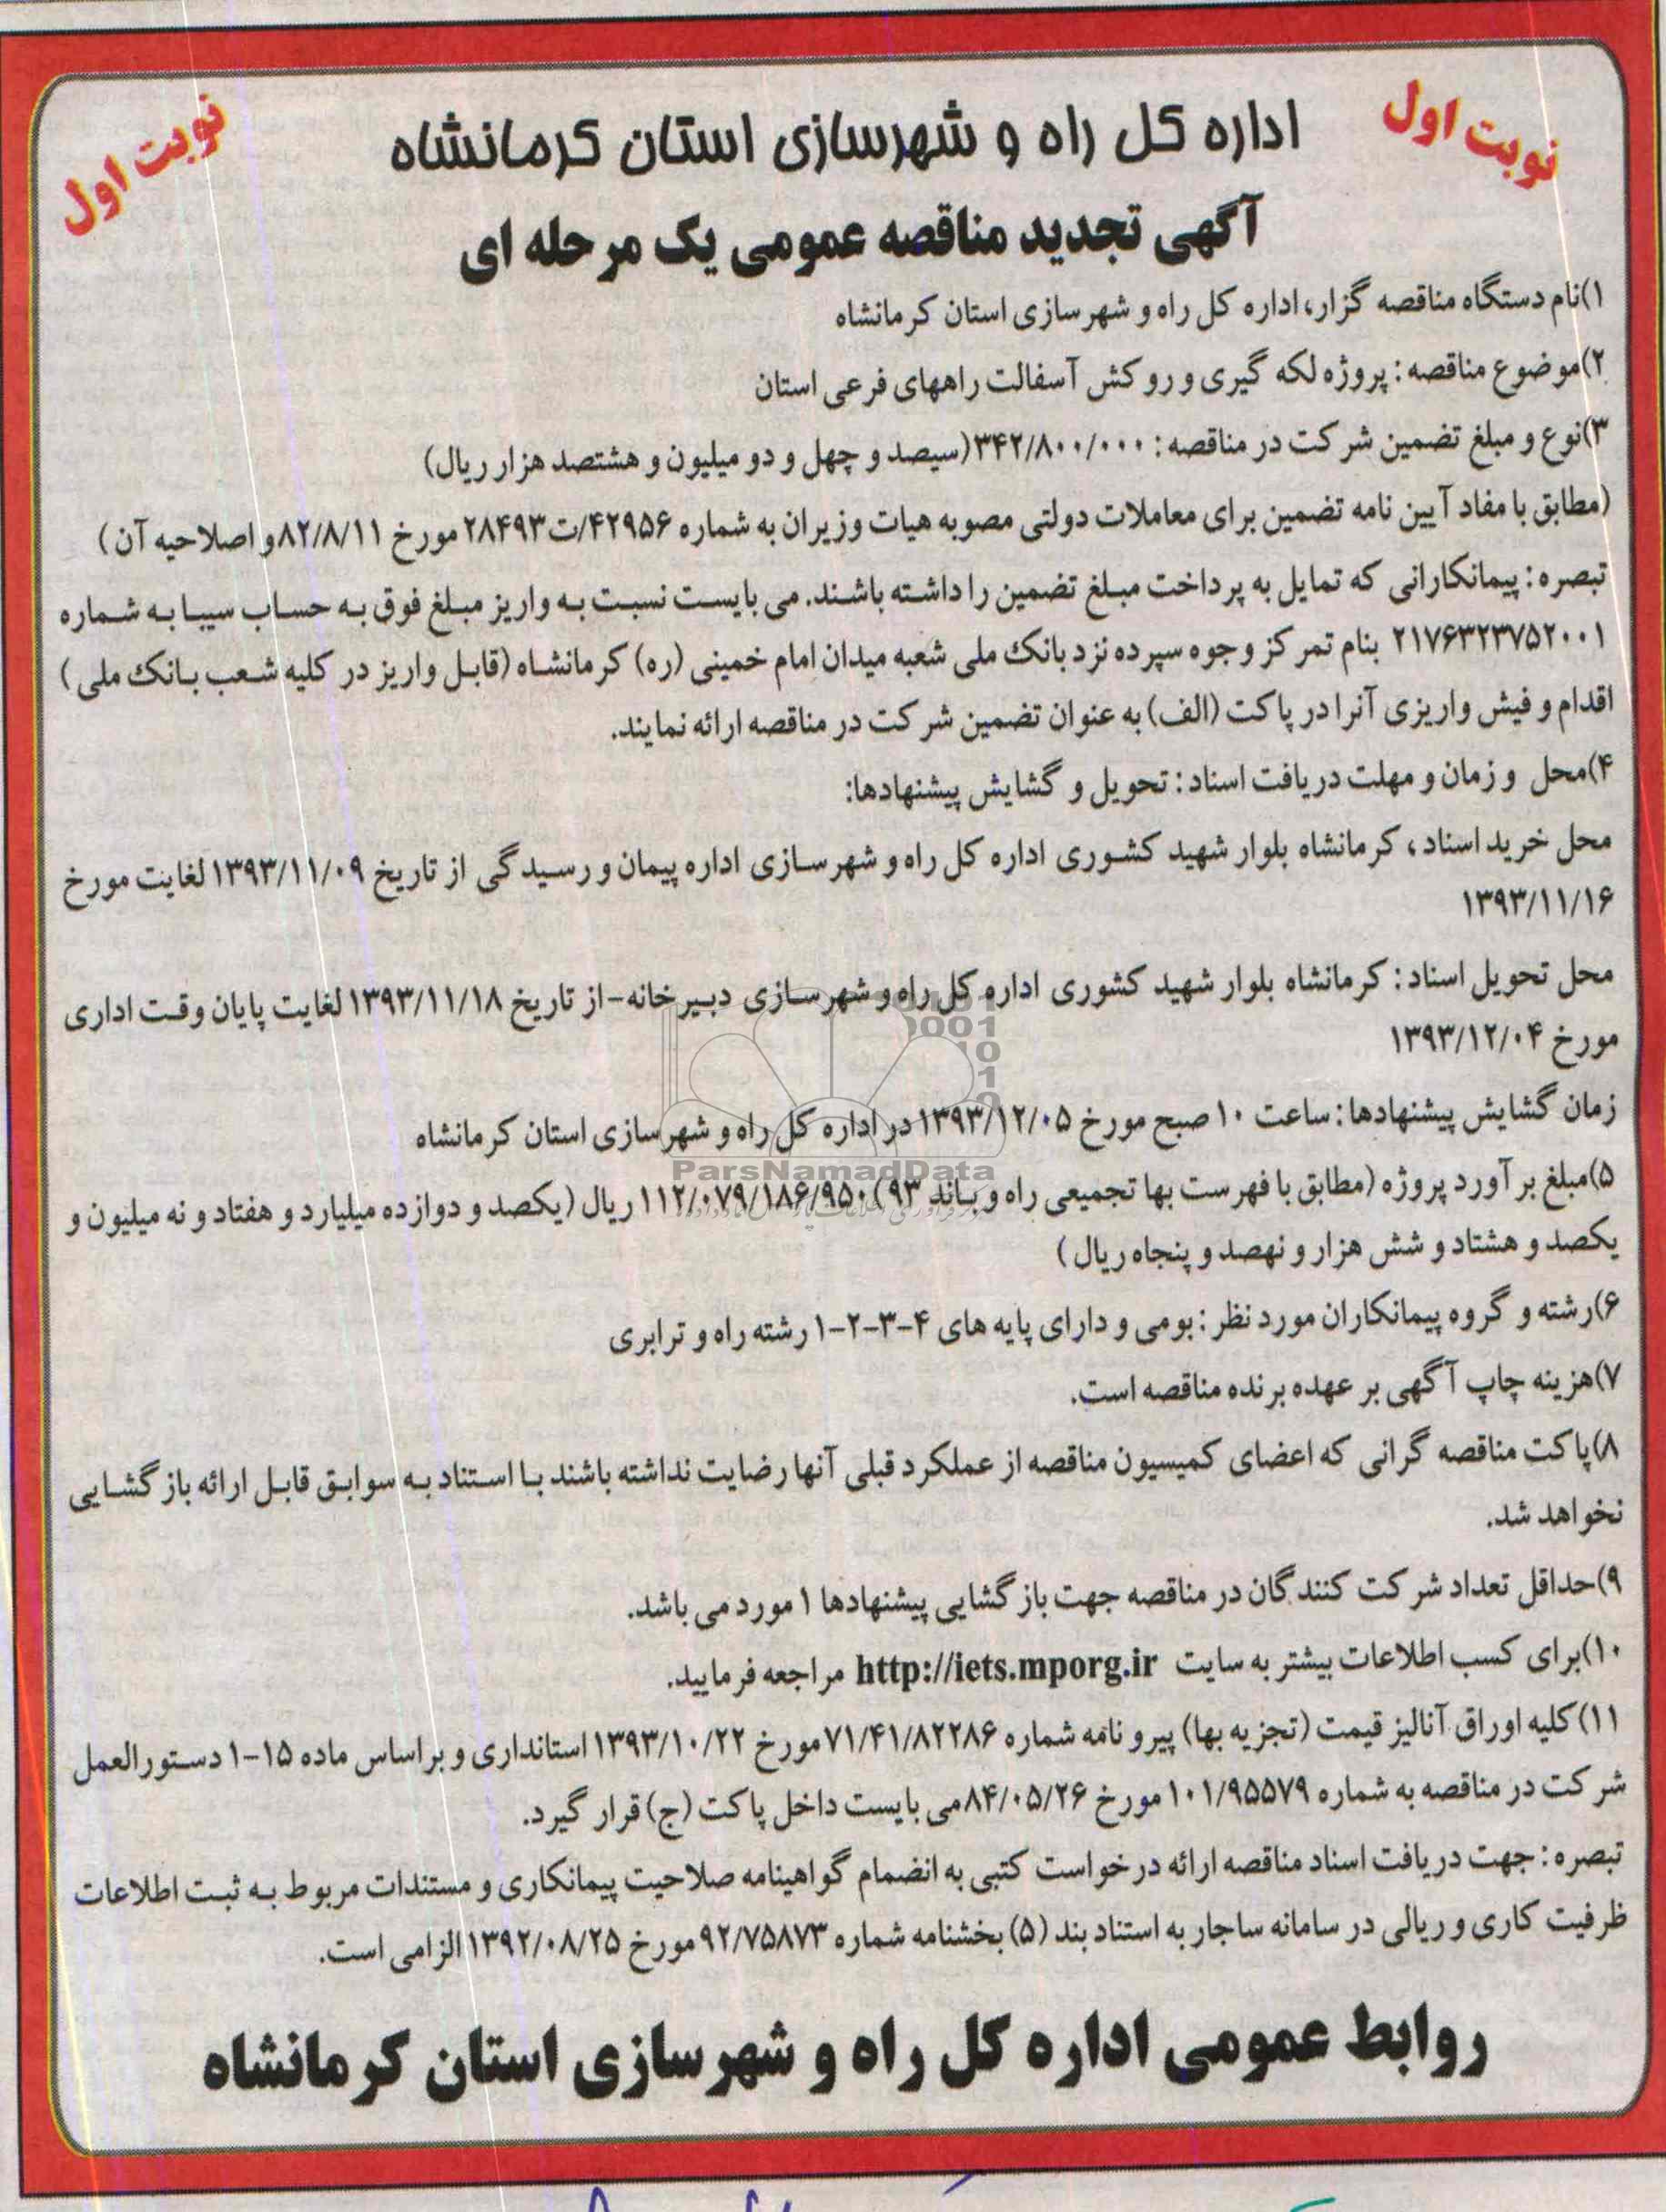 نوبت اول
نوبت اول
اداره کل راه و شهرسازی استان کرمانشاه
آگهی تجدید مناقصه عمومی یک مرحله ای
۱)نام دستگاه مناقصه گزار، اداره کل راه و شهرسازی استان کرمانشاه
۲)موضوع مناقصه: پروژه لکه گیری و روکش آسفالت راههای فرعی استان
۳)نوع و مبلغ تضمین شرکت در مناقصه: ۳۴۲/۸۰۰/۰۰۰(سیصد و چهل و دو میلیون و هشتصد هزار ریال)
(مطابق با مفاد آیین نامه تضمین برای معاملات دولتی مصوبه هیات وزیران به شماره ۴۲۹۵۶/ت۲۸۴۹۳ مورخ ۸۲/۸/۱۱و اصلاحیه آن)
تبصره: پیمانکارانی که تمایل به پرداخت مبلغ تضمین را داشته باشند. می بایست نسبت به واریز مبلغ فوق به حساب سیبا به شماره
۲۱۷۶۳۲۳۷۵۲۰۰۱ بنام تمرکز وجوه سپرده نزد بانک ملی شعبه میدان امام خمینی (ره) کرمانشاه (قابل واریز در کلیه شعب بانک ملی)
اقدام و فیش واریزی آنرا در پاکت (الف) به عنوان تضمین شرکت در مناقصه ارائه نمایند.
۴)محل و زمان و مهلت دریافت اسناد: تحویل و گشایش پیشنهادها:
محل خرید اسناد، کرمانشاه بلوار شهید کشوری اداره کل راه و شهرسازی اداره پیمان و رسیدگی از تاریخ ۱۳۹۳/۱۱/۰۹ لغایت مورخ
۱۳۹۳/۱۱/۱۶
محل تحویل اسناد: کرمانشاه بلوار شهید کشوری اداره کل راه و شهرسازی دبیرخانه-از تاریخ ۱۳۹۳/۱۱/۱۸ لغایت پایان وقت اداری
مورخ ۱۳۹۳/۱۲/۰۴
زمان گشایش پیشنهادها: ساعت ۱۰ صبح مورخ ۱۳۹۳/۱۲/۰۵ در اداره کل راه و شهرسازی استان کرمانشاه
ParsNamadData
۵)مبلغ برآورد پروژه (مطابق با فهرست بها تجمیعی راه و باند ۹۳) ۱۱۲/۰۷۹/۱۸۶/۹۵۰ ریال (یکصد و دوازده میلیارد و هفتاد و نه میلیون و
یکصد و هشتاد و شش هزار و نهصد و پنجاه ریال)
۶)رشته و گروه پیمانکاران مورد نظر: بومی و دارای پایه های ۴-۳-۲-۱ رشته راه و ترابری
۷)هزینه چاپ آگهی بر عهده برنده مناقصه است.
۸)پاکت مناقصه گرانی که اعضای کمیسیون مناقصه از عملکرد قبلی آنها رضایت نداشته باشند با استناد به سوابق قابل ارائه بازگشایی
نخواهد شد.
۹)حداقل تعداد شرکت کنندگان در مناقصه جهت بازگشایی پیشنهادها ۱ مورد می باشد.
۱۰)برای کسب اطلاعات بیشتر به سایت http://iets.mporg.ir مراجعه فرمایید.
۱۱)کلیه اوراق آنالیز قیمت (تجزیه بها) پیرو نامه شماره ۷۱/۴۱/۸۲۲۸۶مورخ ۱۳۹۳/۱۰/۲۲ استانداری و براساس ماده ۱۵-۱ دستورالعمل
شرکت در مناقصه به شماره ۱۰۱/۹۵۵۷۹ مورخ ۸۴/۰۵/۲۶می بایست داخل پاکت (ج) قرار گیرد.
تبصره: جهت دریافت اسناد مناقصه ارائه درخواست کتبی به انضمام گواهینامه صلاحیت پیمانکاری و مستندات مربوط به ثبت اطلاعات
ظرفیت کاری و ریالی در سامانه ساجار به استناد بند (۵) بخشنامه شماره ۹۲/۷۵۸۷۳ مورخ ۱۳۹۲/۰۸/۲۵ الزامی است.
روابط عمومی اداره کل راه و شهرسازی استان کرمانشاه